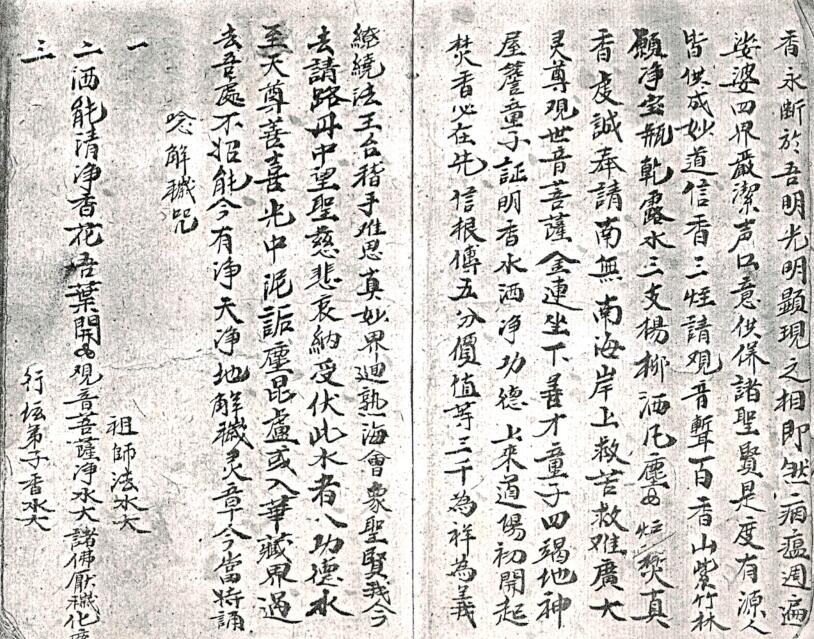 香永断於吾明光明顯現之相即然病瘟週遍
娑婆四界嚴潔声口意供保諸聖賢是度有源人
皆供成妙道信香三炷請观音暫百香山紫竹林
願净宝瓶乾露水三支楊柳洒凡塵 炉焚真
香虔誠奉請南無南海岸上救苦救难廣大
灵尊观世音菩薩金連坐下善才童子四竭地神
屋簷童子証明香水洒净功德上來道陽初開起
焚香心在先信根傳五分價值等三千為祥為義
繚繞法王台稽手难思真妙界迴熟海會衆聖賢我今
去請路丹中望聖慈悲哀納受伏此水者八功德水
至天尊善喜光中泥詬塵昆盧或入華藏界過
去吾處不招能今有净天净地解穢灵章今當持誦
唸解穢咒
一 祖師法水大
二 洒能清净香花吾葉開 观音菩薩净水大諸佛厭穢化
三 行坛弟子香水大